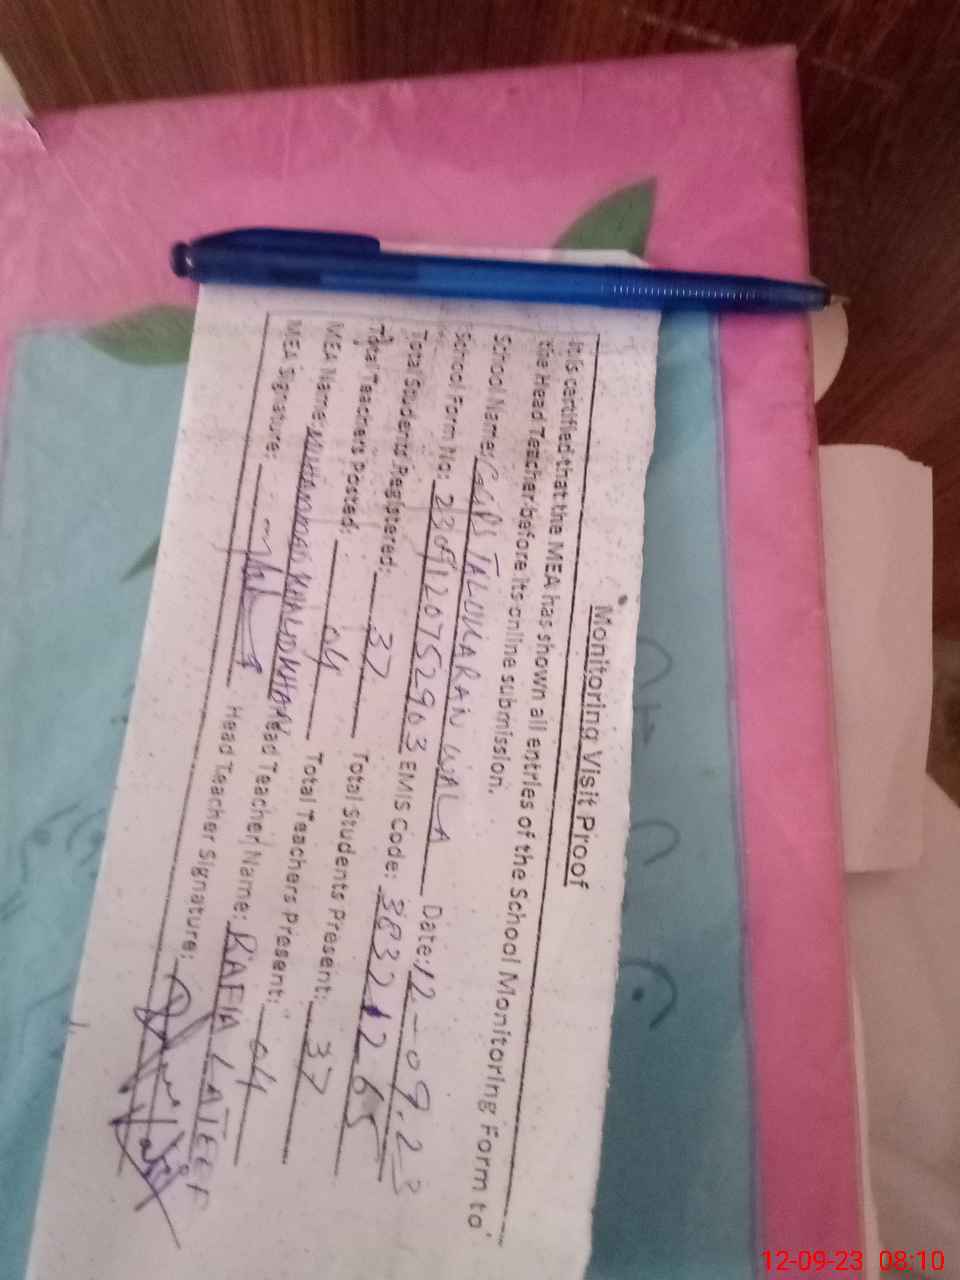 Monitoring Visit Proof
It is certified that the MEA has shown all entries of the School Monitoring Form to
the Head Teacher before its online submission.
School Name: GGPS TALUKARAN WALA Date: 12-09.23
School Form No: 2309120752903 EMIS Code: 38321265
Total Students Registered: 37 Total Students Present: 37
Total Teachers Posted: 04 Total Teachers Present: 04
MEA Name: MUHAMMAD KHALID KHAN Head Teacher Name: RAFIA LATEEF
MEA Signature: Head Teacher Signature:
12-09-23 08:10